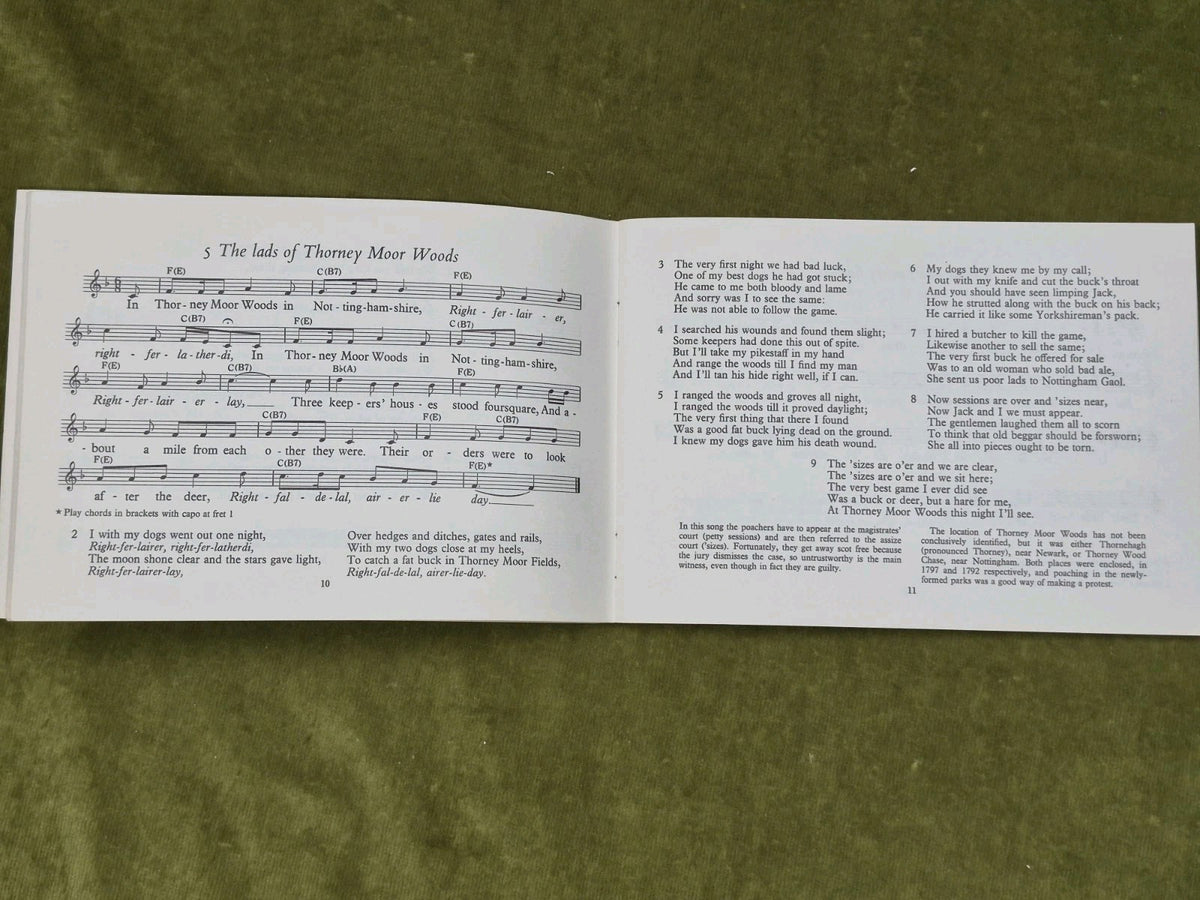 5 The lads of Thorney Moor Woods
F(E) C(B7) F(E)
In Thor - ney Moor Woods in Not - ting-ham-shire, Right - fer - lair - er,
C(B7) F(E) C(B7)
right - fer - la - ther - di, In Thor - ney Moor Woods in Not - ting-ham-shire,
F(E) C(B7) B♭(A) F(E)
Right - fer - lair - er - lay,____ Three keep - ers' hous - es stood foursquare, And a -
C(B7) F(E) C(B7)
- bout a mile from each o - ther they were. Their or - ders were to look
F(E) C(B7) F(E)*
af - ter the deer, Right - fal - de - lal, air - er - lie day____
* Play chords in brackets with capo at fret 1
2 I with my dogs went out one night,
Right-fer-lairer, right-fer-latherdi,
The moon shone clear and the stars gave light,
Right-fer-lairer-lay,
Over hedges and ditches, gates and rails,
With my two dogs close at my heels,
To catch a fat buck in Thorney Moor Fields,
Right-fal-de-lal, airer-lie-day.
10
3 The very first night we had bad luck,
One of my best dogs he had got stuck;
He came to me both bloody and lame
And sorry was I to see the same:
He was not able to follow the game.
4 I searched his wounds and found them slight;
Some keepers had done this out of spite.
But I'll take my pikestaff in my hand
And range the woods till I find my man
And I'll tan his hide right well, if I can.
5 I ranged the woods and groves all night,
I ranged the woods till it proved daylight;
The very first thing that there I found
Was a good fat buck lying dead on the ground.
I knew my dogs gave him his death wound.
6 My dogs they knew me by my call;
I out with my knife and cut the buck's throat
And you should have seen limping Jack,
How he strutted along with the buck on his back;
He carried it like some Yorkshireman's pack.
7 I hired a butcher to kill the game,
Likewise another to sell the same;
The very first buck he offered for sale
Was to an old woman who sold bad ale,
She sent us poor lads to Nottingham Gaol.
8 Now sessions are over and 'sizes near,
Now Jack and I we must appear.
The gentlemen laughed them all to scorn
To think that old beggar should be forsworn;
She all into pieces ought to be torn.
9 The 'sizes are o'er and we are clear,
The 'sizes are o'er and we sit here;
The very best game I ever did see
Was a buck or deer, but a hare for me,
At Thorney Moor Woods this night I'll see.
In this song the poachers have to appear at the magistrates'
court (petty sessions) and are then referred to the assize
court ('sizes). Fortunately, they get away scot free because
the jury dismisses the case, so untrustworthy is the main
witness, even though in fact they are guilty.
The location of Thorney Moor Woods has not been
conclusively identified, but it was either Thornehagh
(pronounced Thorney), near Newark, or Thorney Wood
Chase, near Nottingham. Both places were enclosed, in
1797 and 1792 respectively, and poaching in the newly-
formed parks was a good way of making a protest.
11